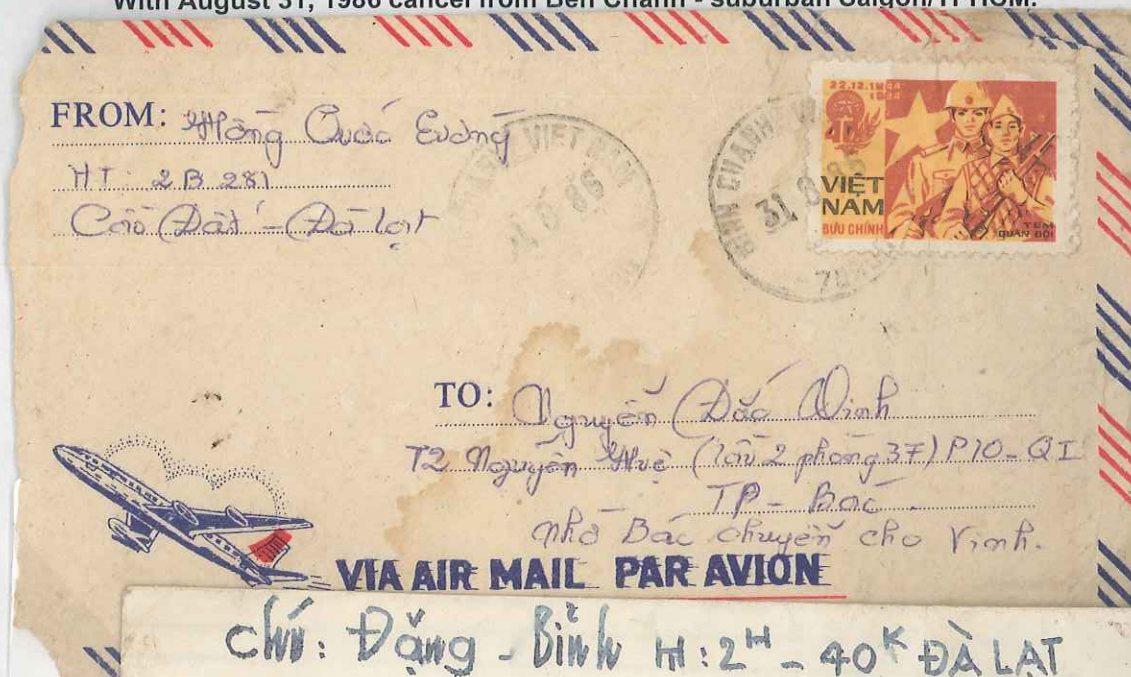 With August 31, 1986 cancel from Ben Chanh - suburban Saigon/TPHCM.
FROM: Hồng Quốc Cường
HT: 2B 281
Cầu Đất - Đà Lạt
VIỆT NAM
8 86
BINH CHANH
31 8 86
22.12.1944
1984
VIỆT
NAM
BƯU CHÍNH
TEM
QUÂN ĐỘI
TO: Nguyễn Đắc Vinh
72 Nguyễn Huệ (lầu 2 phòng 37) P10 - QI
TP - Bác
Nhờ Bác chuyển cho Vinh.
VIA AIR MAIL PAR AVION
chú: Đặng - Bình H: 2H - 40K ĐÀ LẠT